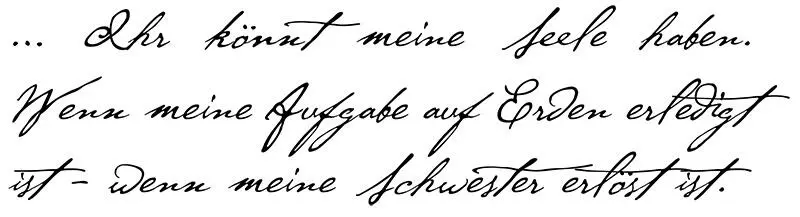 ... Ihr könnt meine Seele haben.
Wenn meine Aufgabe auf Erden erledigt
ist – wenn meine Schwester erlöst ist.